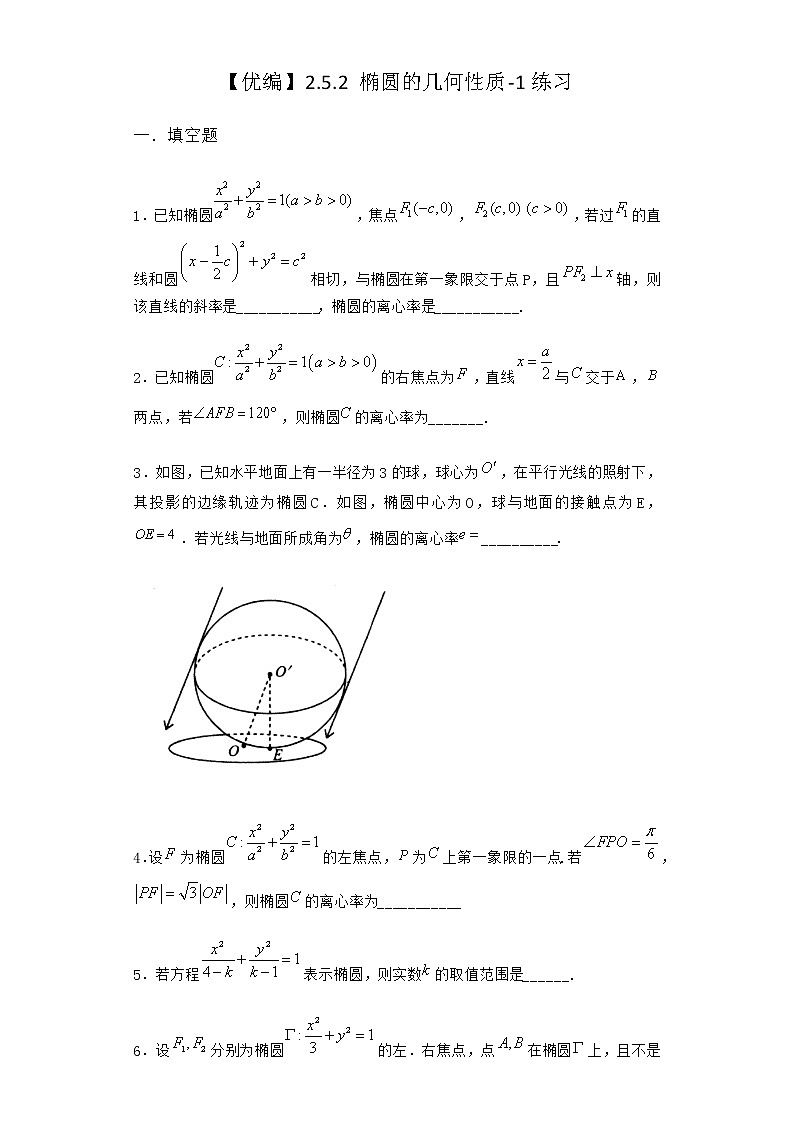 【优编】2.5.2 椭圆的几何性质-1练习
一．填空题
1．已知椭圆x²/a²+y²/b²=1(a>b>0)，焦点F₁(−c,0)，F₂(c,0) (c>0)，若过F₁的直
线和圆(x−1/2c)²+y²=c²相切，与椭圆在第一象限交于点P，且PF₂⊥x轴，则
该直线的斜率是___________，椭圆的离心率是___________．
2．已知椭圆C:x²/a²+y²/b²=1(a>b>0)的右焦点为F，直线x=a/2与C交于A，B
两点，若∠AFB=120°，则椭圆C的离心率为_______．
3．如图，已知水平地面上有一半径为3的球，球心为O′，在平行光线的照射下，
其投影的边缘轨迹为椭圆C．如图，椭圆中心为O，球与地面的接触点为E，
OE=4．若光线与地面所成角为θ，椭圆的离心率e=__________．
O′
O
E
4．设F为椭圆C:x²/a²+y²/b²=1的左焦点，P为C上第一象限的一点．若∠FPO=π/6，
|PF|=√3|OF|，则椭圆C的离心率为___________
5．若方程x²/(4−k)+y²/(k−1)=1表示椭圆，则实数k的取值范围是______．
6．设F₁,F₂分别为椭圆Γ:x²/3+y²=1的左．右焦点，点A,B在椭圆Γ上，且不是